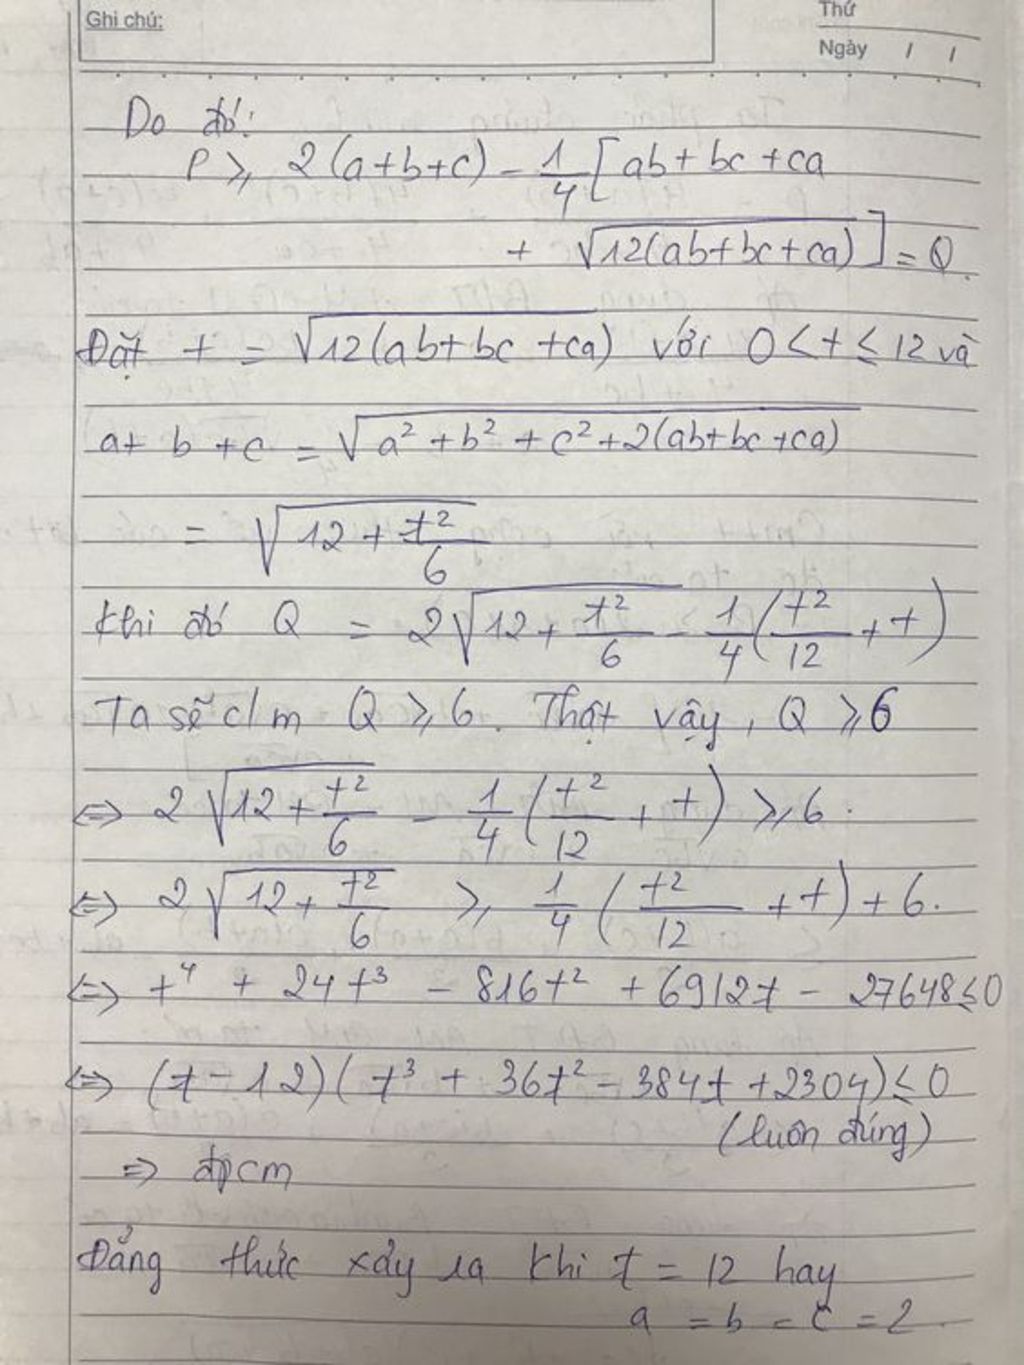 Ghi chú:
Thứ
Ngày / /
Do đó:
P ⩾ 2(a+b+c) - 1/4 [ab + bc + ca
+ √12(ab+bc+ca)] = Q.
Đặt t = √12(ab+bc+ca) với 0 < t ≤ 12 và
a + b + c = √a² + b² + c² + 2(ab+bc+ca)
= √12 + t²/6
Khi đó Q = 2√12 + t²/6 - 1/4 (t²/12 + t)
Ta sẽ c/m Q ⩾ 6. Thật vậy, Q ⩾ 6
⇔ 2√12 + t²/6 - 1/4 (t²/12 + t) ⩾ 6.
⇔ 2√12 + t²/6 ⩾ 1/4 (t²/12 + t) + 6.
⇔ t⁴ + 24t³ - 816t² + 6912t - 27648 ≤ 0
⇔ (t - 12)(t³ + 36t² - 384t + 2304) ≤ 0
(luôn đúng)
⇒ đpcm
Đẳng thức xảy ra khi t = 12 hay
a = b = c = 2.